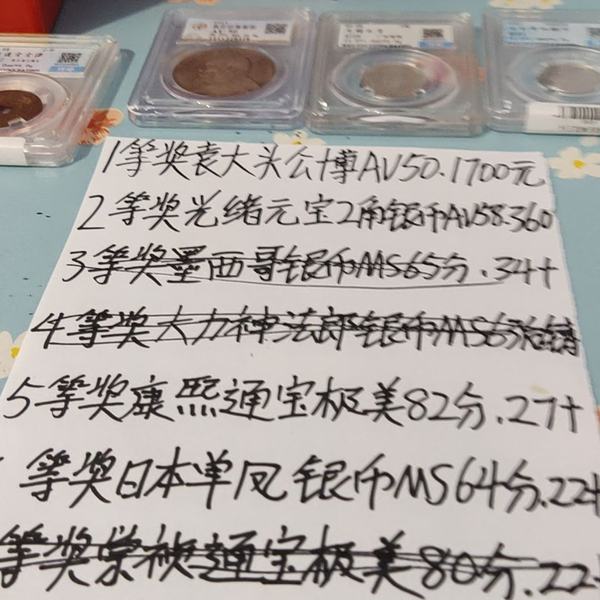 1等奖袁大头公博AU50.1700元
2等奖光绪元宝2角银币AU58.360
3等奖墨西哥银币MS65分.34+
4等奖大力神法郎银币MS6
5等奖康熙通宝极美82分.27+
等奖日本单凤银币MS64分.22+
等奖崇祯通宝极美80分.22